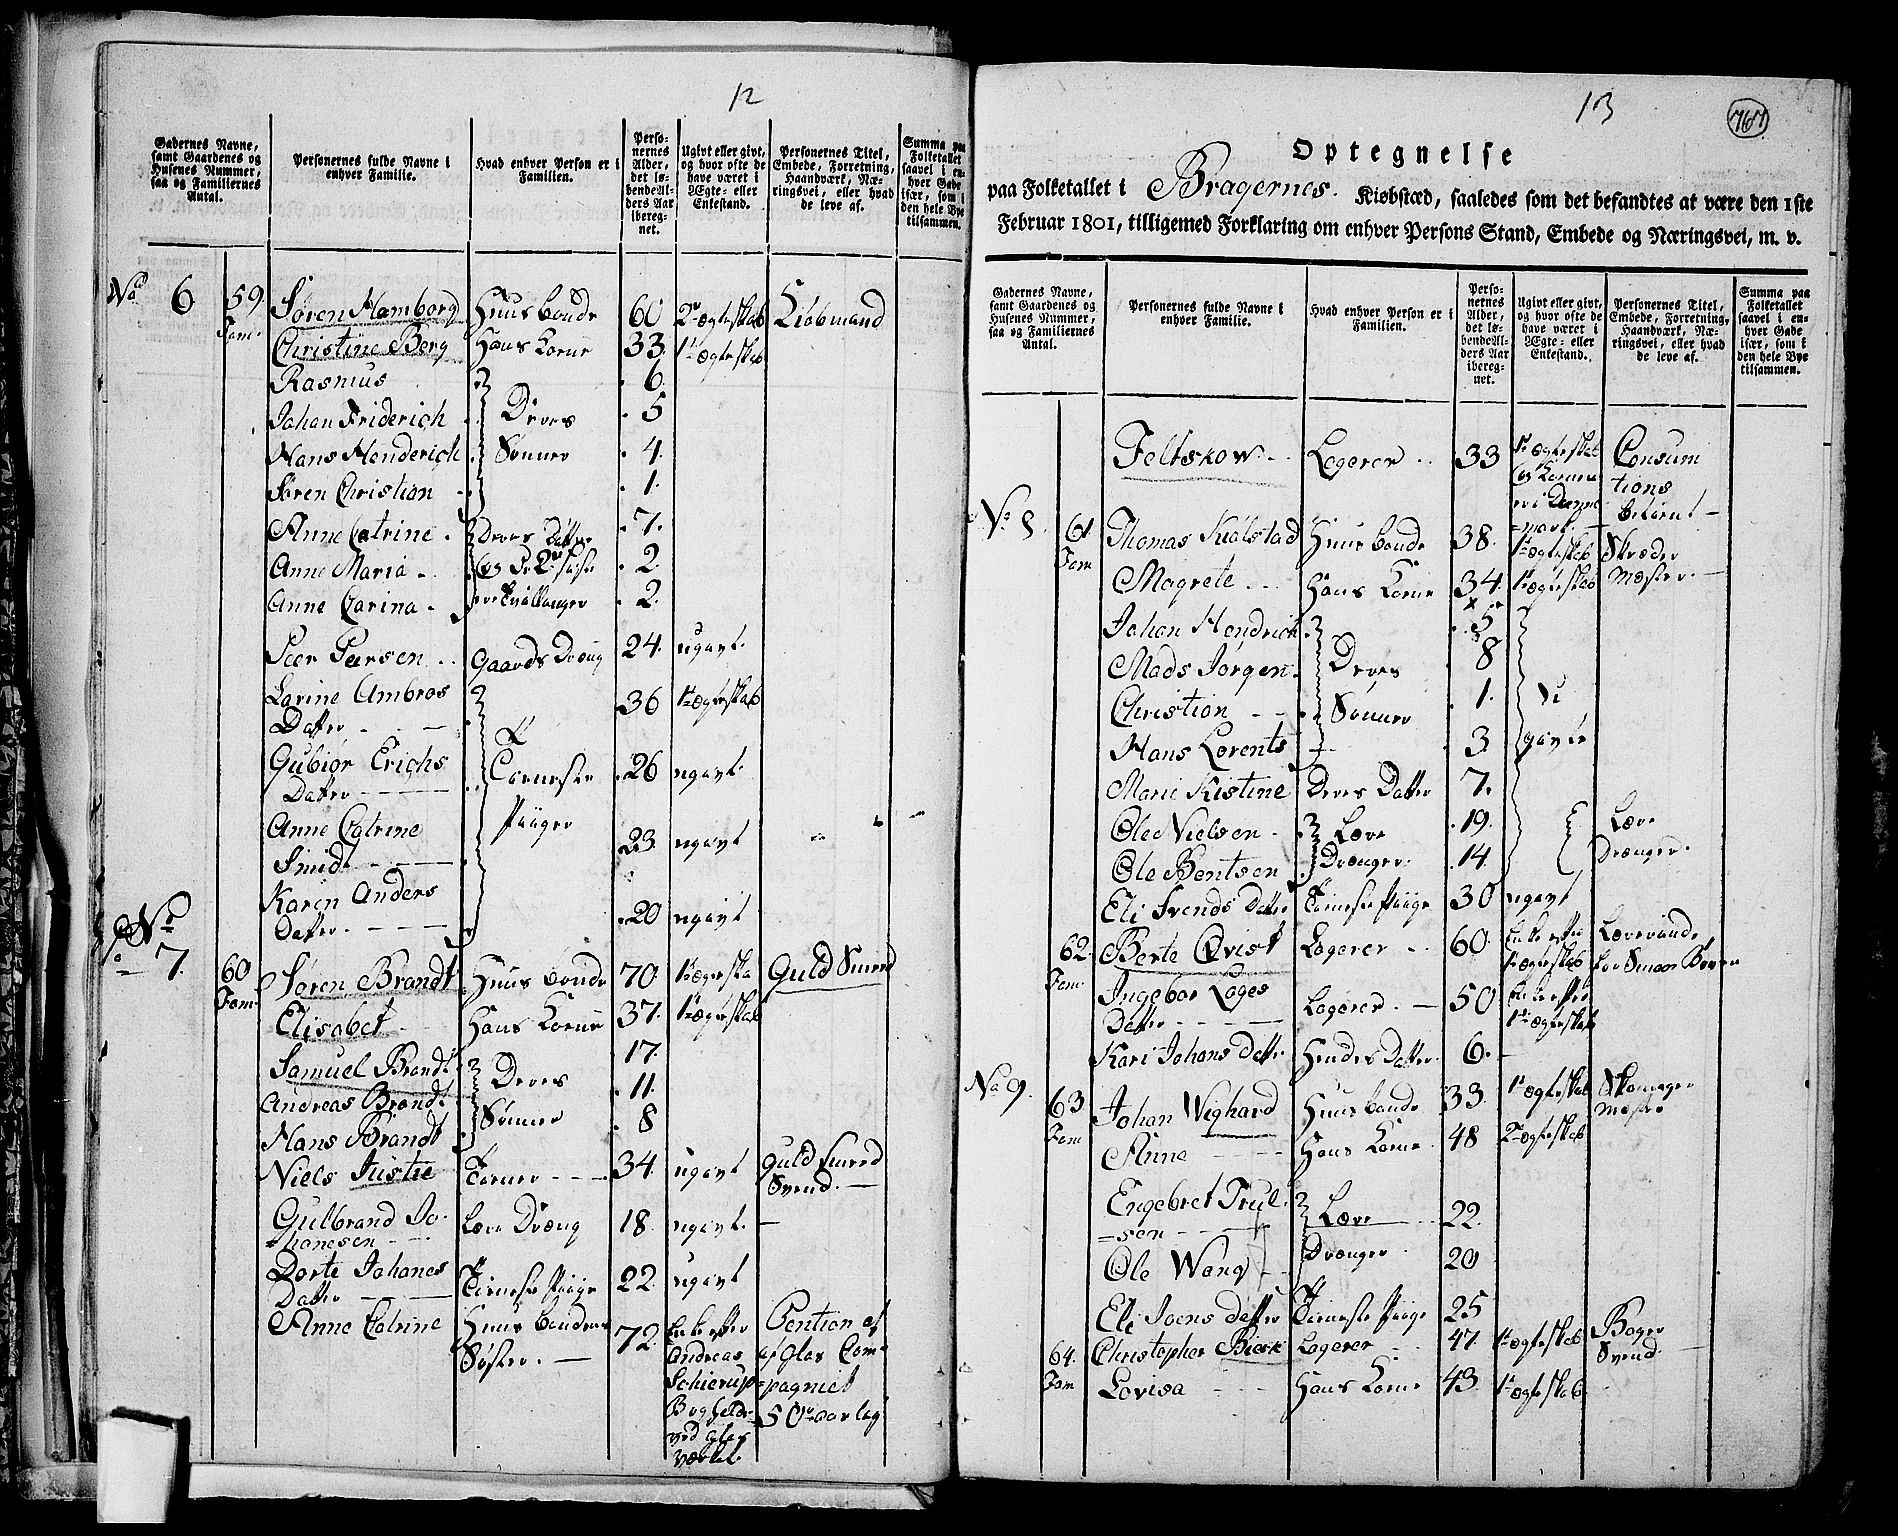 12
Gadernes Navne, samt Gaardenes og Husenes Nummer, saa og Familiernes Antal.
Personernes fulde Navne i enhver Familie.
Hvad enhver Person er i Familien.
Personernes Alder, det løbende Alders Aar iberegnet.
Ugivt eller givt, og hvor ofte de have været i Ægte- eller Enkestand.
Personernes Titel, Embede, Forretning, Haandværk, Næringsvei, eller hvad de leve af.
Summa paa Folketallet saavel i enhver Gade især, som i den hele Bye tilsammen.
No 6 59 Fam. Søren Hamborg Huusbonde 60 2 Ægteskab Kiøbmand
Christine Berg Hans Kone 33 1 Ægteskab
Rasmus 6
Johan Friderich Deres 5
Hans Henderich Sønner 4
Søren Christian 1
Anne Catrine Deres Døttre 7
Anne Maria og De 2 sidste 2
Anne Carina er Tvillinger 2
Peer Peersen Gaards Dreng 24 ugivt
Larine Ambros Datter 36 1 Ægteskab
Gubiør Erichs Datter Tieneste 26 ugivt
Anne Catrine Smidt Piiger 23 ugivt
Karen Anders Datter 20 ugivt
No 7 60 Fam Søren Brandt Huusbonde 70 1 Ægteska Guld Smed
Elisabet Hans Kone 37 1 Ægteskab
Samuel Brandt Deres 17
Andreas Brandt Sønner 11
Hans Brandt 8
Niels Justie Tiener 34 ugivt Guld Smed Svend
Gulbrand Johanesen Lære Dreng 18 ugivt
Dorte Johanes Datter Tieneste Piige 22 ugivt
Anne Catrine Huusbondens Søster 72 Enke efter Andreas Schierup Bogholder ved Glas Værket Pention af Glas Compagniet 50 aarlig
13
Optegnelse
paa Folketallet i Bragernes Kiøbstæd, saaledes som det befandtes at være den 1ste
Februar 1801, tilligemed Forklaring om enhver Persons Stand, Embede og Næringsvei, m. v.
Gadernes Navne, samt Gaardenes og Husenes Nummer, saa og Familiernes Antal.
Personernes fulde Navne i enhver Familie.
Hvad enhver Person er i Familien.
Personernes Alder, det løbende Alders Aar iberegnet.
Ugivt eller givt, og hvor ofte de have været i Ægte- eller Enkestand.
Personernes Titel, Embede, Forretning, Haandværk, Næringsvei, eller hvad de leve af.
Summa paa Folketallet saavel i enhver Gade især, som i den hele Bye tilsammen.
Feltskow Logerer 33 1 Ægteskab og Konen er i Dannemark Consumtions betient
No 8 61 Fam Thomas Kiølstad Huusbonde 38 1 Ægteskab Skræder Mester
Magrete Hans Kone 34 1 Ægteskab
Johan Hendrich 5
Mads Jørgen Deres 8
Christian Sønner 1 U
Hans Lorents 3 givte
Marie Kistine Deres Datter 7
Ole Nielsen Lære 19 Lære
Ole Bentsen Drenger 14 Drenger
Eli Svends Datter Tieneste Piige 30 ugivt
62 Fam Berte Qvist Logerer 60 Enke efter 1 Ægteskab
Ingebor Lages Datter Logerer 50 Enke efter 1 Ægteskab
Kari Johans Datter Hendes Datter 6
No 9 63 Fam Johan Wighard Huusbonde 33 1 Ægteskab Skomager Mester
Anne Hans Kone 48 2 Ægteskab
Engebret Trulsen Lære 22
Ole Wang Drenger 20
Eli Joens Datter Tieneste Piige 25
64 Fam Christopher Bierk Logerer 47 1 Ægteskab Bager Svend
Lovisa Hans Kone 43 1 Ægteskab